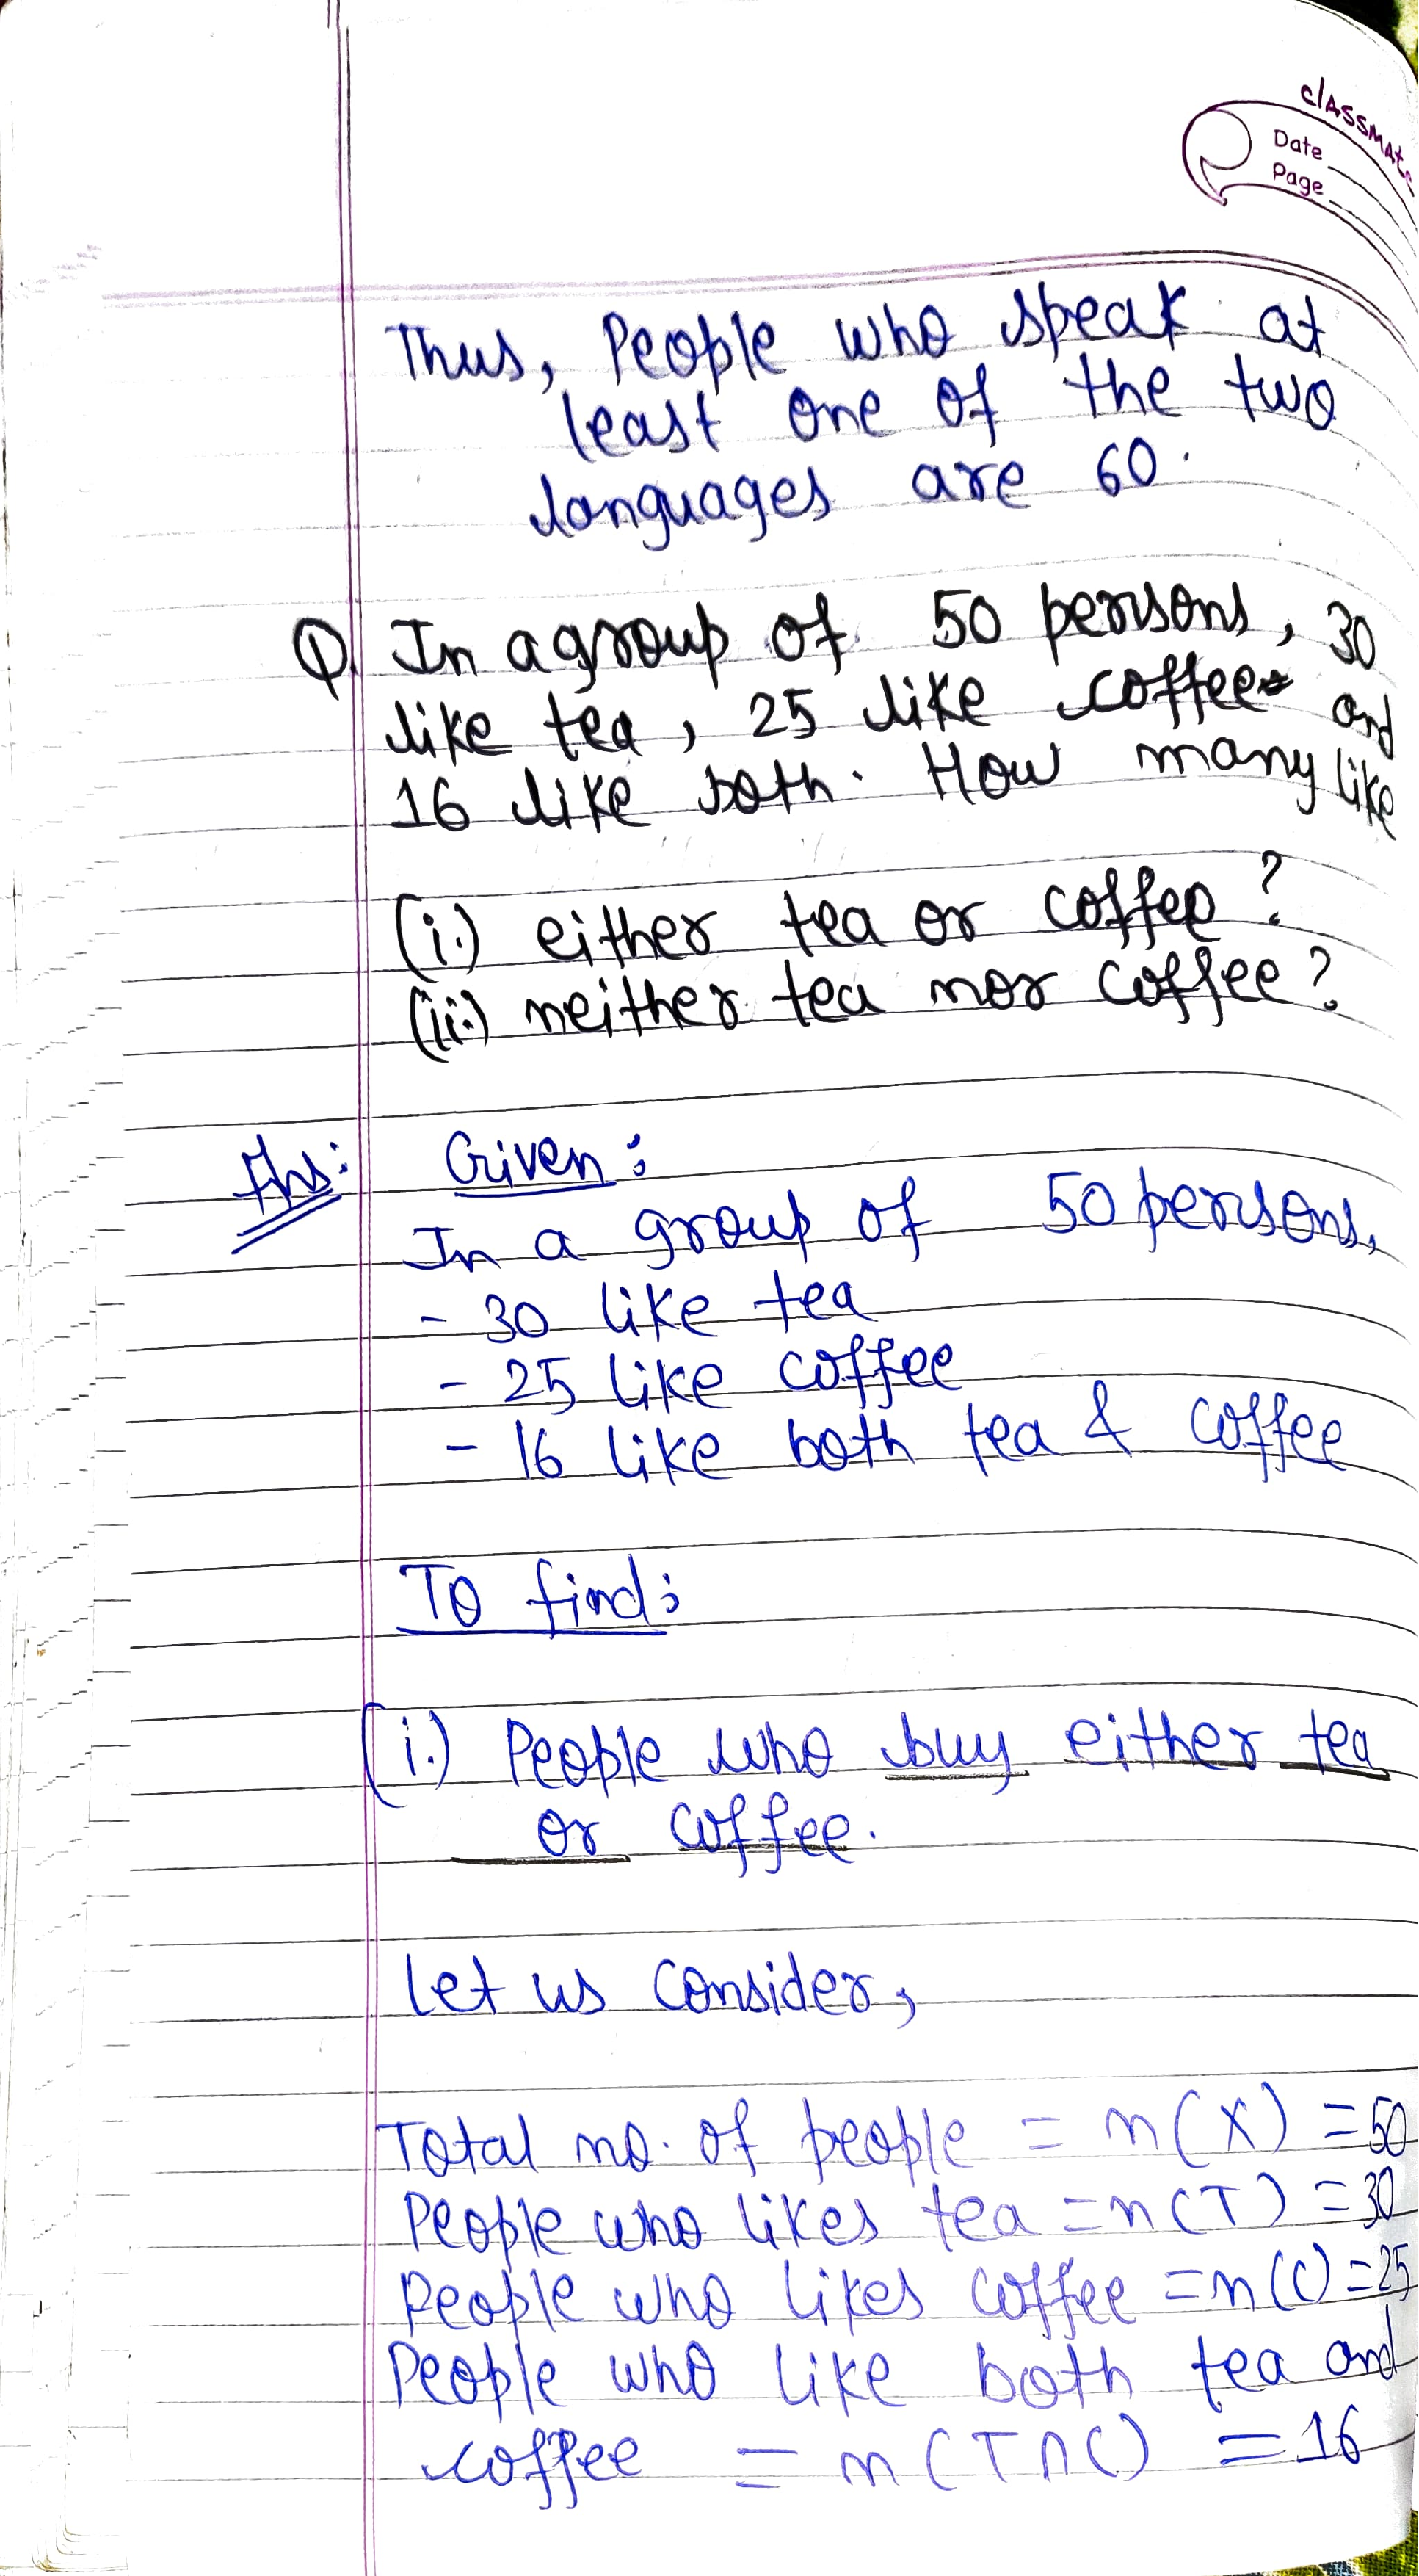 classmate
Date
Page
Thus, People who speak at
least one of the two
languages are 60.
Q. In a group of 50 persons, 30
like tea, 25 like coffee and
16 like both. How many like
(i.) either tea or coffee?
(ii.) neither tea nor coffee?
Ans: Given:
In a group of 50 persons,
- 30 like tea
- 25 like coffee
- 16 like both tea & coffee
To find:
(i.) People who buy either tea
or coffee.
Let us consider,
Total no. of people = n(X) = 50
People who likes tea = n(T) = 30
People who likes coffee = n(C) = 25
People who like both tea and
coffee = n(T∩C) = 16